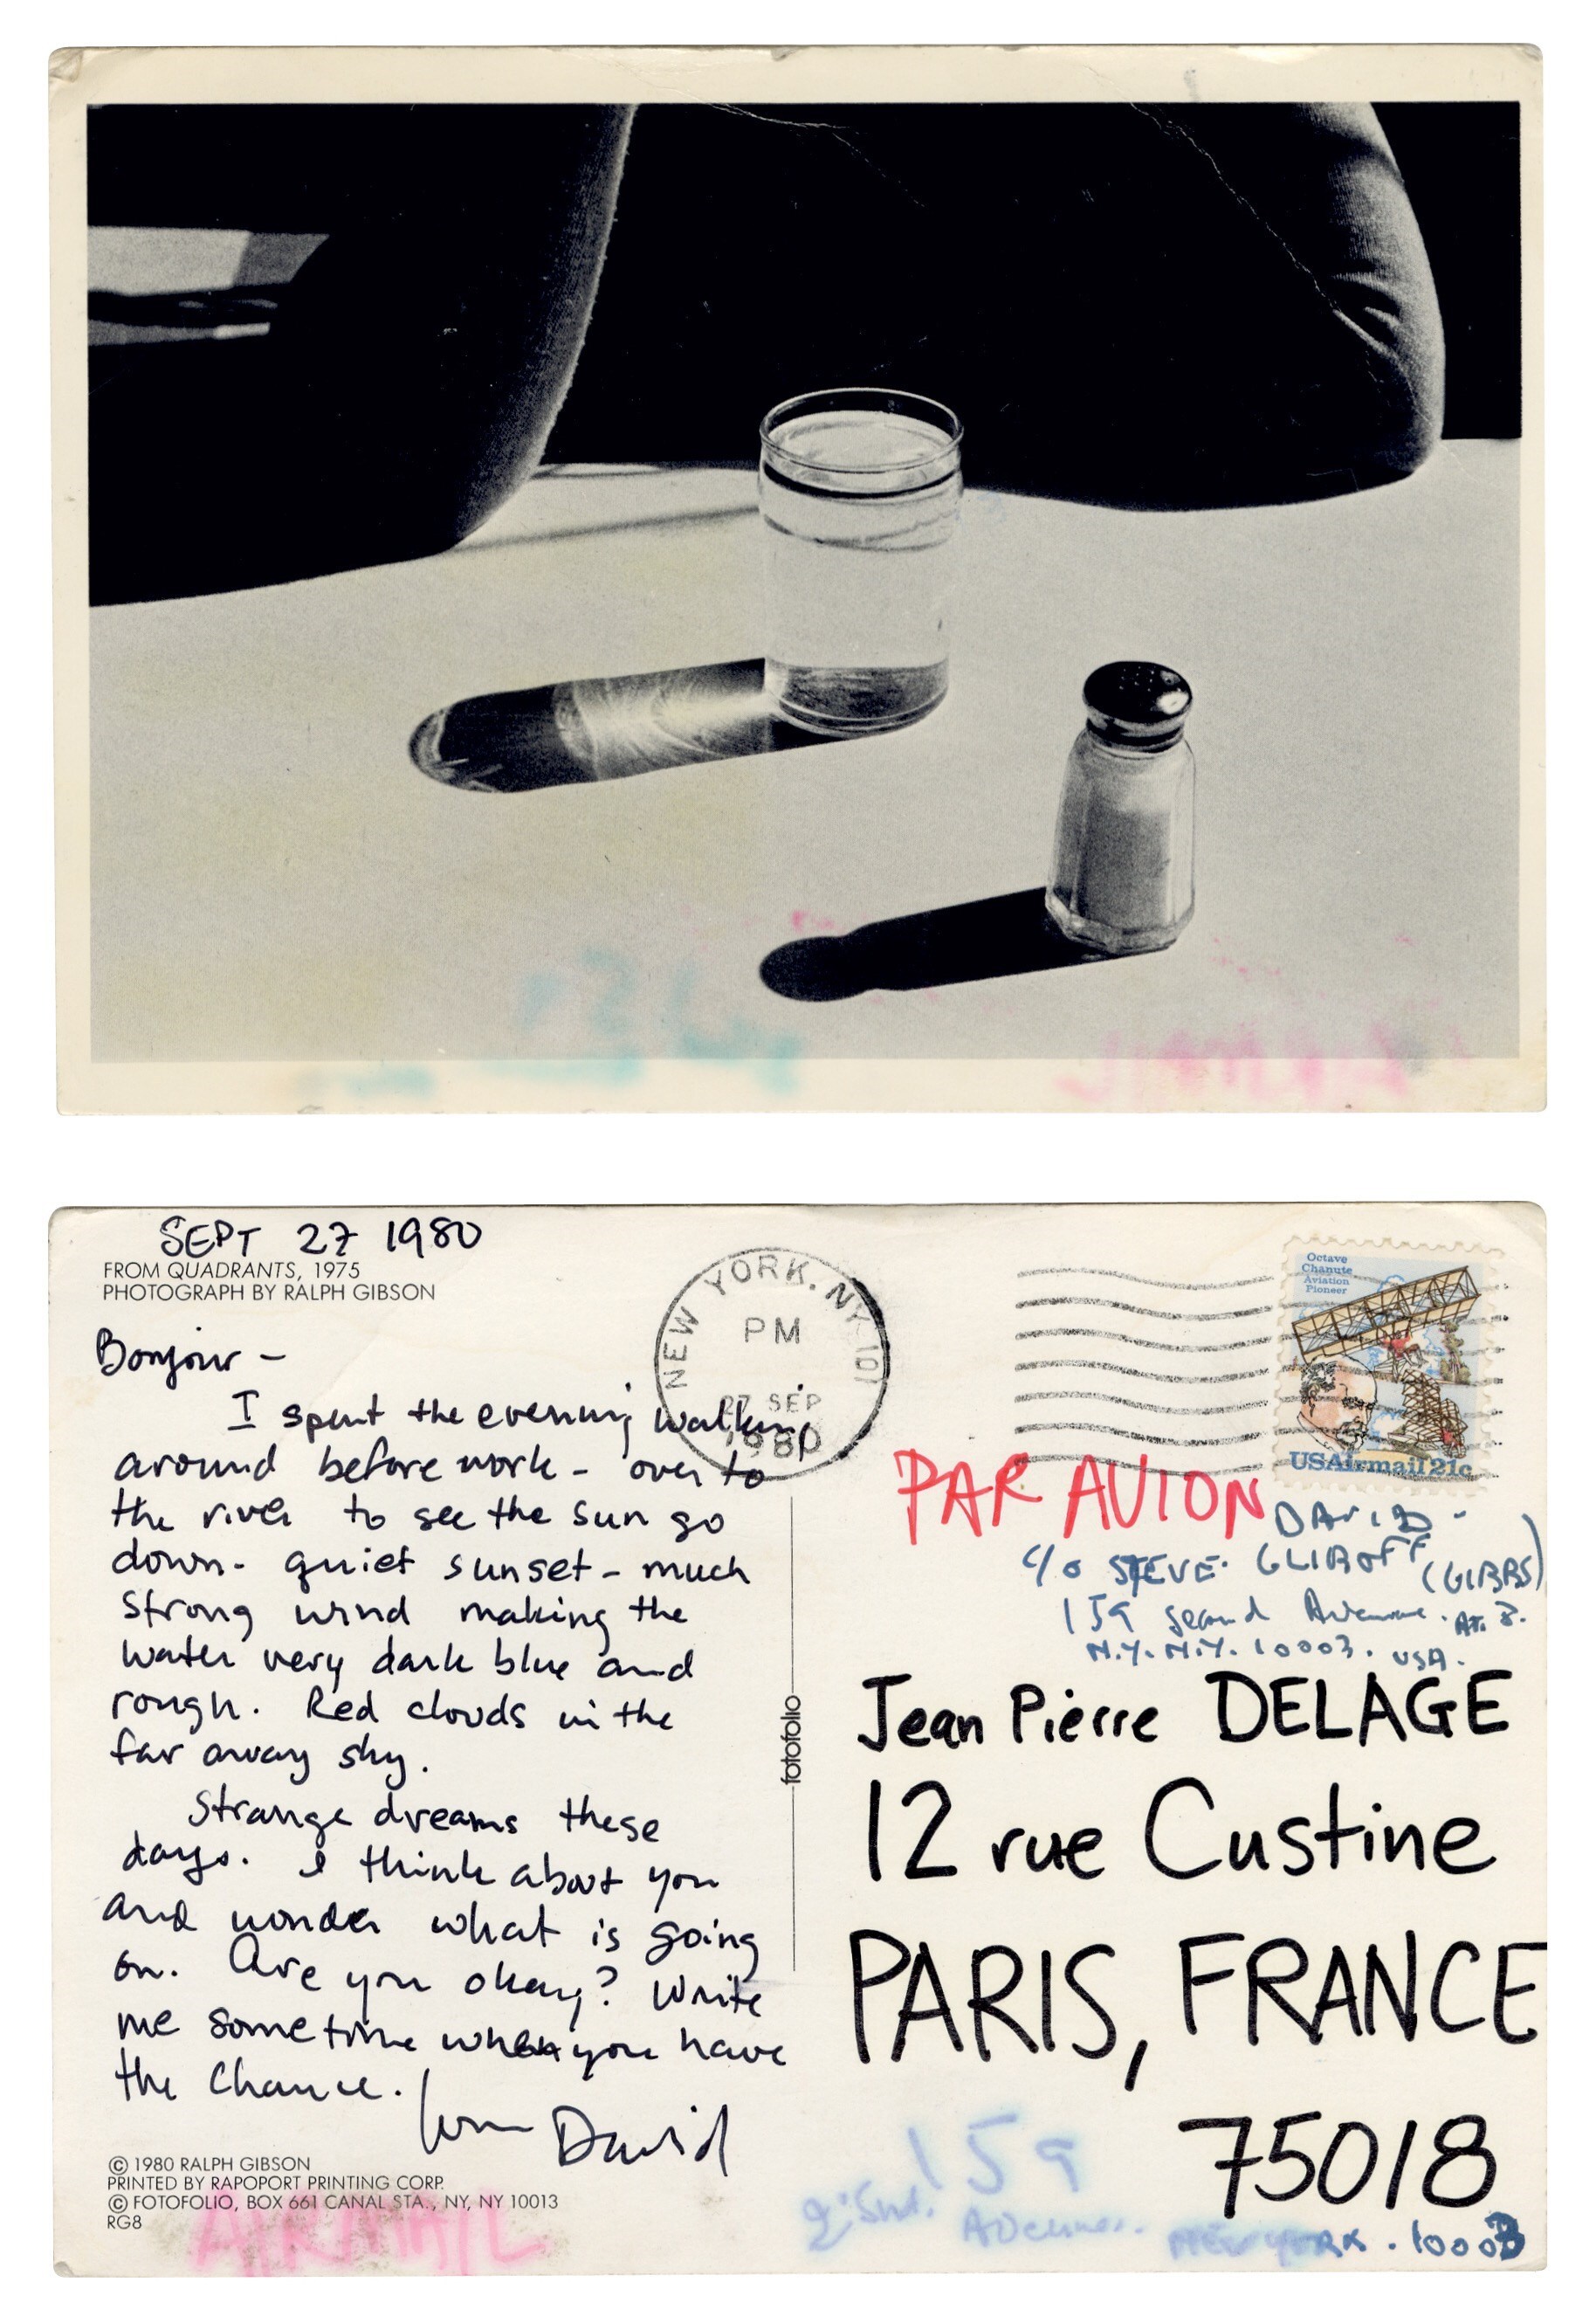 SEPT 27 1980
FROM QUADRANTS, 1975
PHOTOGRAPH BY RALPH GIBSON
Bonjour -
I spent the evening walking
around before work - over to
the river to see the sun go
down - quiet sunset - much
strong wind making the
water very dark blue and
rough. Red clouds in the
far away sky.
Strange dreams these
days. I think about you
and wonder what is going
on. Are you okay? Write
me sometime when you have
the chance.
Love David
© 1980 RALPH GIBSON
PRINTED BY RAPOPORT PRINTING CORP.
© FOTOFOLIO, BOX 661 CANAL STA., NY, NY 10013
RG8
AIRMAIL
fotofolio
NEW YORK, NY 101
PM
27 SEP
1980
Octave
Chanute
Aviation
Pioneer
USAirmail 21c
PAR AVION
DAVID -
c/o STEVE GLIBOFF
(GIBBS)
159 Second Avenue. APT. 8.
N.Y. N.Y. 10003. USA.
Jean Pierre DELAGE
12 rue Custine
PARIS, FRANCE
75018
159
Avenue.
NEW YORK. 10003